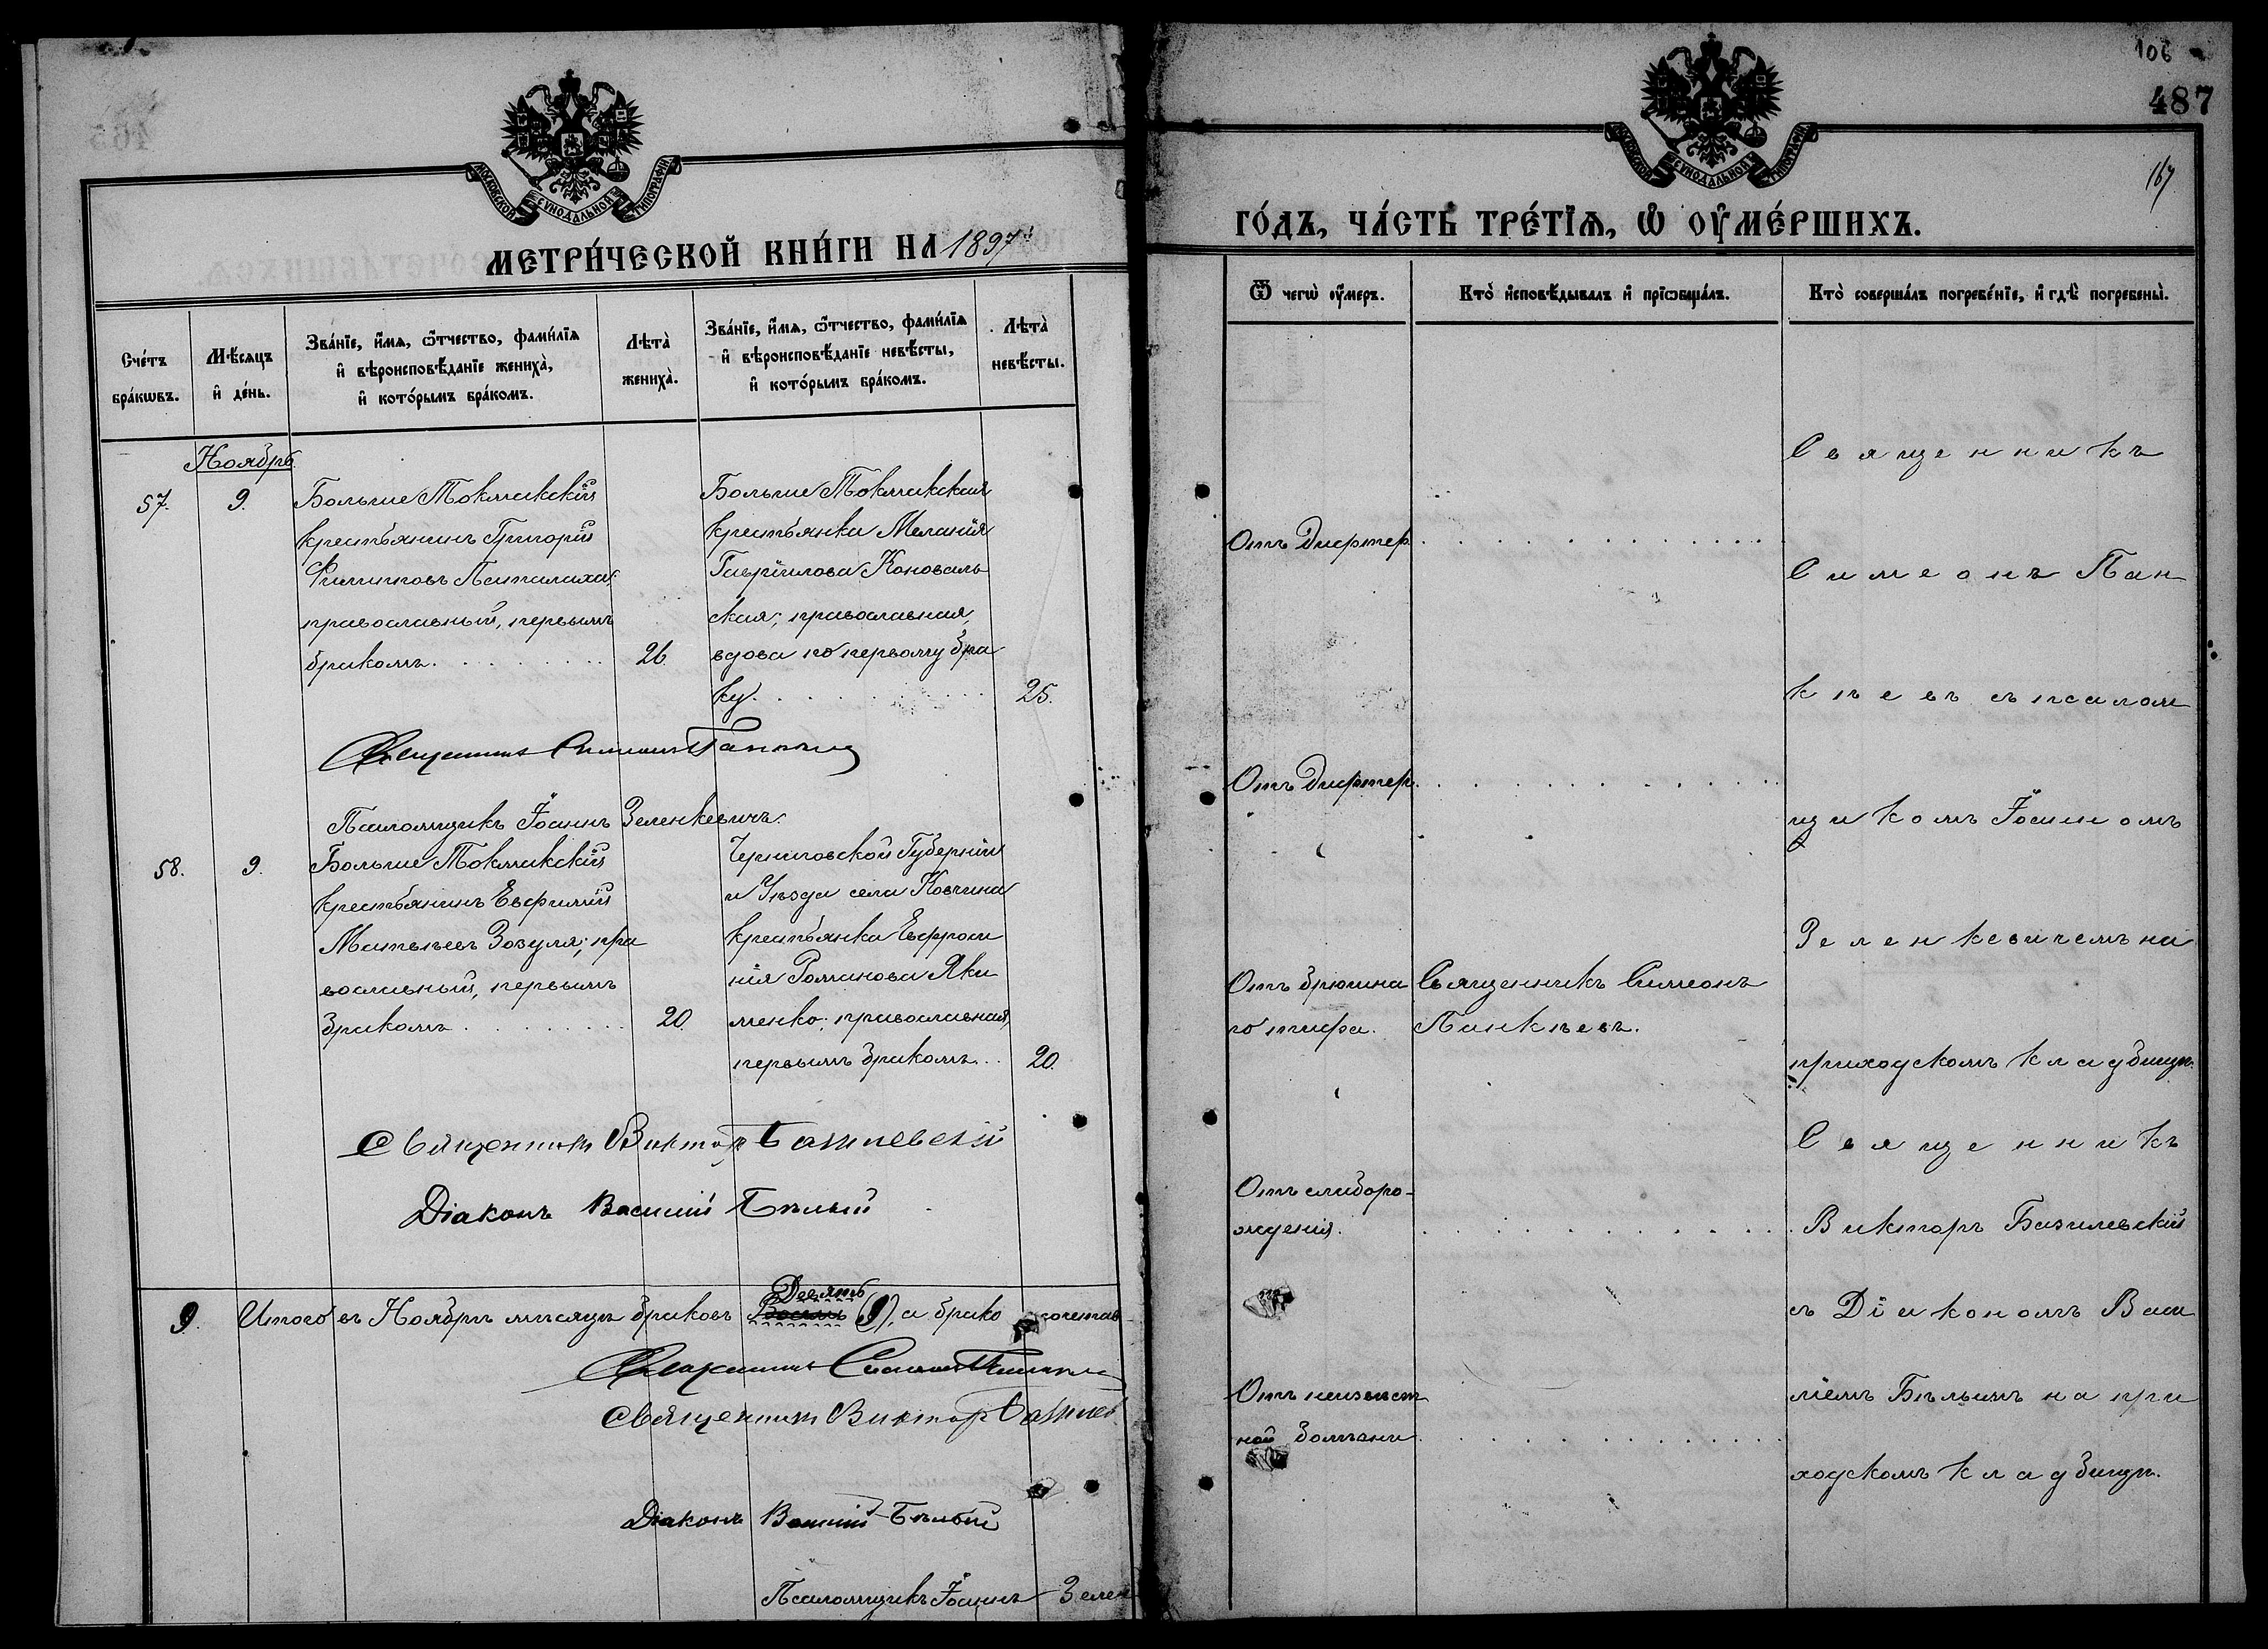 106
487
167
МОСКОВСКОЙ СѴНОДАЛЬНОЙ ТИПОГРАФІИ
МЕТРИ́ЧЕСКОЙ КНИ́ГИ НА 1897й
Сче́тъ бра́кѡвъ.
Мѣ́сяцъ и҆ де́нь.
Зва́нїе, и҆́мѧ, ѻ҆́тчество, фами́лїѧ
и҆ вѣроисповѣ́данїе жениха̀,
и҆ кото́рымъ бра́комъ.
Лѣта̀ жениха̀.
Зва́нїе, и҆́мѧ, ѻ҆́тчество, фами́лїѧ
и҆ вѣроисповѣ́данїе невѣ́сты,
и҆ кото́рымъ бра́комъ.
Лѣта̀ невѣ́сты.
Ноябрь
57.
9.
Больше Токмакскій
крестьянинъ Григорій
Филиповъ
православный, первымъ
бракомъ.
26.
Больше Токмакская
крестьянка Меланія
Гавріилова Коноваль
ская; православная,
вдова по первому бра
ку.
25.
Священникъ Симеонъ Панкѣевъ
Псаломщикъ Іоаннъ Зеленкевичъ.
58.
9.
Больше Токмакскій
крестьянинъ Евфимій
Матвѣевъ Зозуля; пра
вославный, первымъ
бракомъ
20.
Черниговской Губерніи
и Уѣзда села Ковчина
крестьянка Евфроси
нія Романова Яки
менко; православная,
первымъ бракомъ..
20.
Священникъ Викторъ Базилевскій
Діаконъ Василій Бѣлый
9.
Итого въ Ноябрѣ мѣсяцѣ браковъ Восемь Девять (9), а брако сочетав
Священникъ Симеонъ Панкѣев
Священникъ Викторъ Базилев
Діаконъ Василій Бѣлый
Псаломщикъ Іоаннъ Зелен
МОСКОВСКОЙ СѴНОДАЛЬНОЙ ТИПОГРАФІИ
ГО́ДЪ, ЧА́СТЬ ТРЕ́ТЇѦ, Ѡ҆ ОУ҆МЕ́РШИХЪ.
Ѿ чегѡ̀ оу҆́меръ.
Кто̀ и҆сповѣ́дывалъ и҆ прїѡбща́лъ.
Кто̀ соверша́лъ погребе́нїе, и҆ гдѣ̀ погребены̀.
Священникъ
Отъ дифтер.
Симеонъ Пан
кѣевъ съ псалом
Отъ дифтер.
щикомъ Іоанномъ
Зеленкевичемъ на
Отъ брюшна
го тифа.
Священникъ Симеонъ
Панкѣевъ.
приходскомъ кладбищѣ.
Священникъ
Отъ слаборо-
жденія.
Викторъ Базилевскій
съ Діакономъ Васи
Отъ неизвѣст
ной болѣзни
ліемъ Бѣлымъ на при
ходскомъ кладбищѣ.